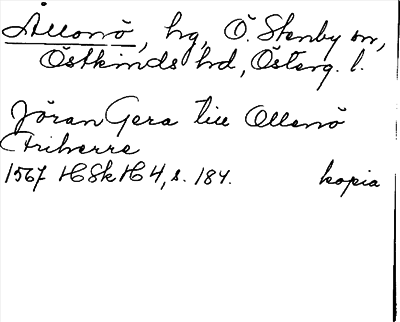 Ållonö, hg, Ö. Stenby sn,
Östkinds hd, Österg. l.
Jöran Gera till Ollonö
Friherre
1567 HSkH 4, s. 184. kopia